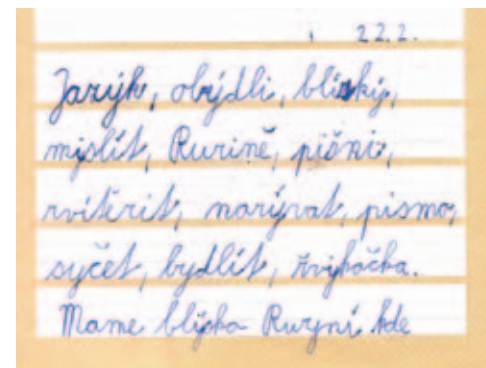 22.2.
Jazyk, obydlí, blízký,
myslít, Ruzině, píšni,
zvítězit, nazývat, pismo,
syčet, bydlít, žvýkačka.
Mame blízko Ruzyní kde